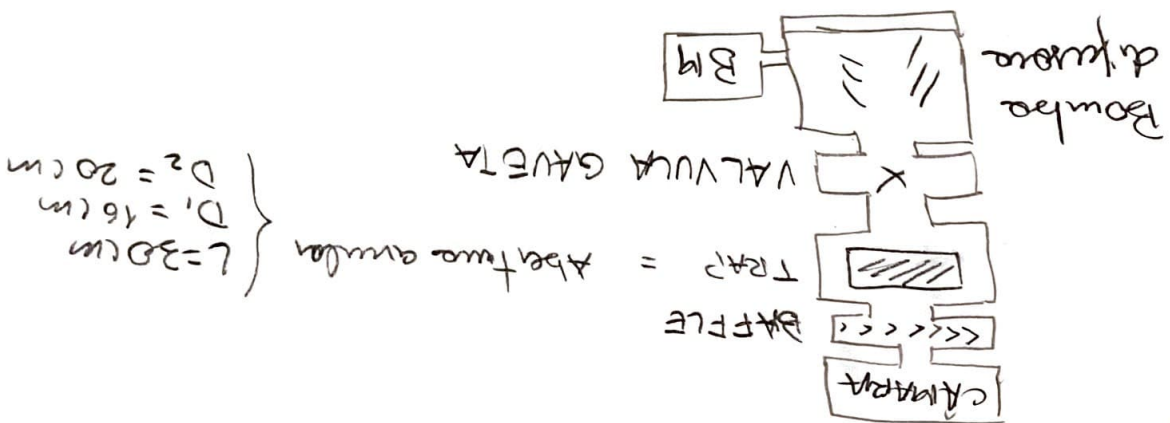 CÂMARA
BAFFLE
TRAP = Abertura anular { L=30cm
D₁ = 16cm
D₂ = 20cm
VALVULA GAVETA
Bomba
difusora
BM